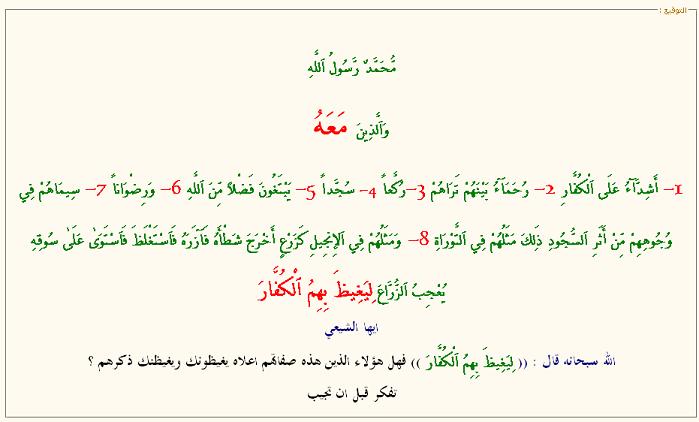 التوقيع :
مُّحَمَّدٌ رَّسُولُ ٱللَّهِ
وَٱلَّذِينَ مَعَهُ
1– أَشِدَّآءُ عَلَى ٱلْكُفَّارِ 2– رُحَمَآءُ بَيْنَهُمْ تَرَاهُمْ 3– رُكَّعاً 4– سُجَّداً 5– يَبْتَغُونَ فَضْلاً مِّنَ ٱللَّهِ 6– وَرِضْوَاناً 7– سِيمَاهُمْ فِي
وُجُوهِهِمْ مِّنْ أَثَرِ ٱلسُّجُودِ ذَلِكَ مَثَلُهُمْ فِي ٱلتَّوْرَاةِ 8– وَمَثَلُهُمْ فِي ٱلإِنجِيلِ كَزَرْعٍ أَخْرَجَ شَطْأَهُ فَآزَرَهُ فَٱسْتَغْلَظَ فَٱسْتَوَىٰ عَلَىٰ سُوقِهِ
يُعْجِبُ ٱلزُّرَّاعَ لِيَغِيظَ بِهِمُ ٱلْكُفَّارَ
ايها الشيعي
الله سبحانه قال : (( لِيَغِيظَ بِهِمُ ٱلْكُفَّارَ )) فهل هؤلاء الذين هذه صفاتهم اعلاه يغيظونك ويغيظك ذكرهم ؟
تفكر قبل ان تجيب